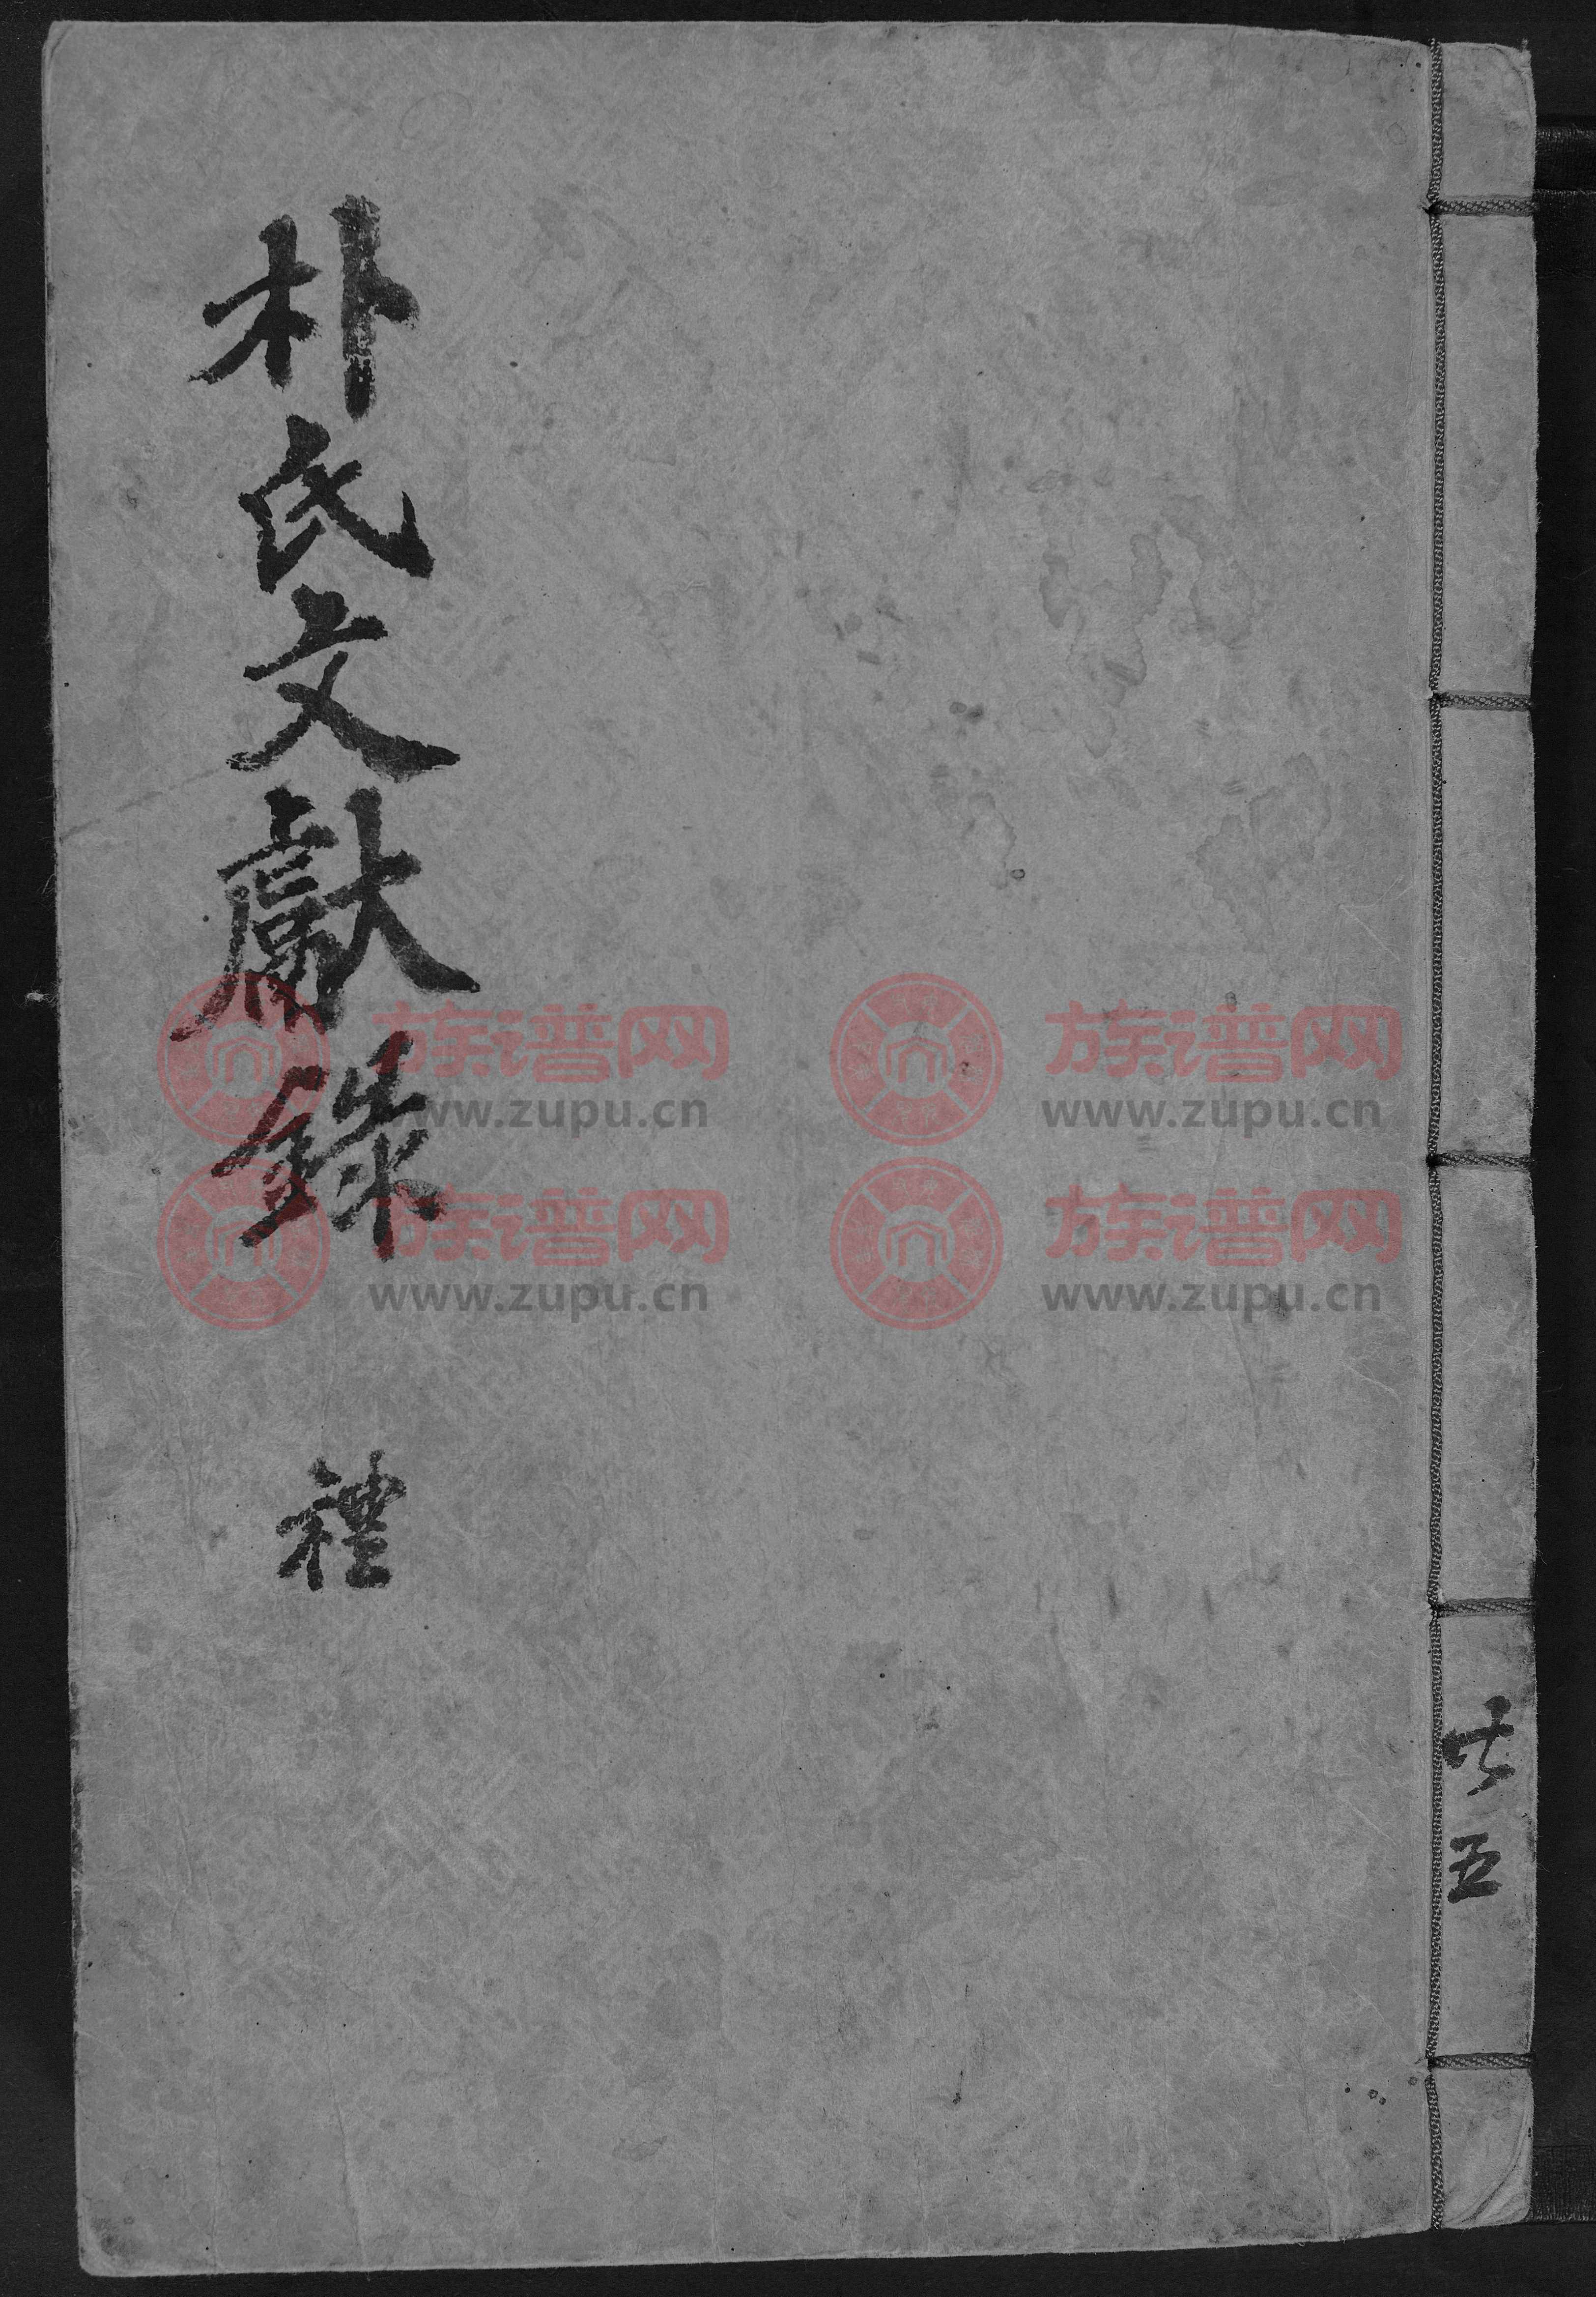 朴氏文獻錄
禮
共五
族谱网
www.zupu.cn
族谱网
www.zupu.cn
族谱网
www.zupu.cn
族谱网
www.zupu.cn